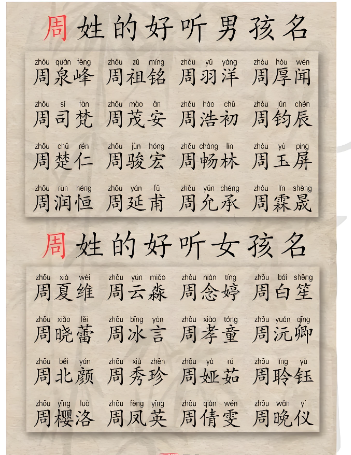 周姓的好听男孩名
zhōu quán fēng zhōu zǔ míng zhōu yǔ yáng zhōu hòu wén
周泉峰 周祖铭 周羽洋 周厚闻
zhōu sī fàn zhōu mào ān zhōu hào chū zhōu jūn chén
周司梵 周茂安 周浩初 周钧辰
zhōu chǔ rén zhōu jùn hóng zhōu chàng lín zhōu yù píng
周楚仁 周骏宏 周畅林 周玉屏
zhōu rùn héng zhōu yán fǔ zhōu yǔn chéng zhōu lín shèng
周润恒 周延甫 周允承 周霖晟
周姓的好听女孩名
zhōu xià wéi zhōu yún miǎo zhōu niàn tíng zhōu bái shēng
周夏维 周云淼 周念婷 周白笙
zhōu xiǎo lěi zhōu bīng yán zhōu xiào tóng zhōu yuán qīng
周晓蕾 周冰言 周孝童 周沅卿
zhōu běi yán zhōu xiù zhēn zhōu yà rú zhōu líng yù
周北颜 周秀珍 周娅茹 周聆钰
zhōu yīng luò zhōu fèng yīng zhōu qiàn wén zhōu wǎn yí
周樱洛 周凤英 周倩雯 周晚仪